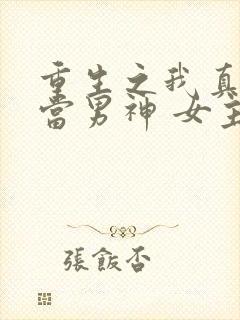 重生之我真
当男神 女主
張飯否